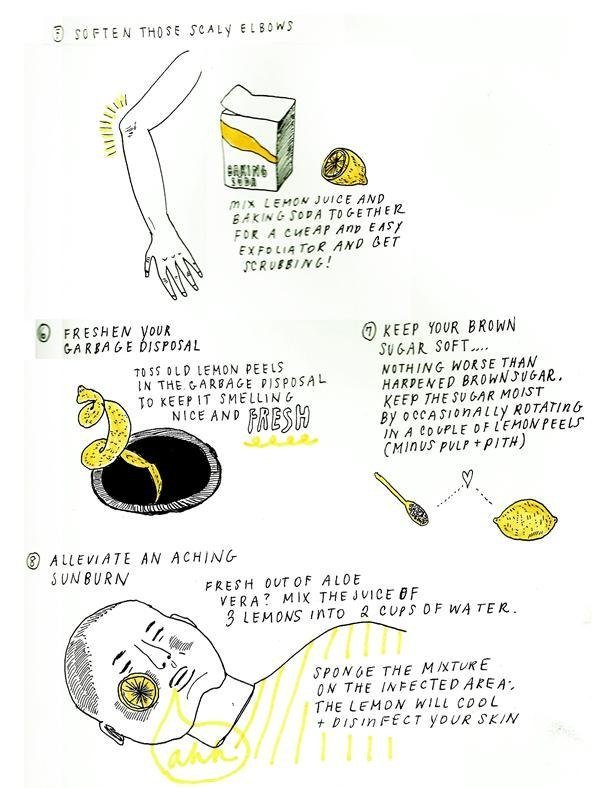 ⑤ SOFTEN THOSE SCALY ELBOWS
BAKING
SODA
MIX LEMON JUICE AND
BAKING SODA TOGETHER
FOR A CHEAP AND EASY
EXFOLIATOR AND GET
SCRUBBING!
⑥ FRESHEN YOUR
GARBAGE DISPOSAL
TOSS OLD LEMON PEELS
IN THE GARBAGE DISPOSAL
TO KEEP IT SMELLING
NICE AND FRESH
⑦ KEEP YOUR BROWN
SUGAR SOFT....
NOTHING WORSE THAN
HARDENED BROWN SUGAR.
KEEP THE SUGAR MOIST
BY OCCASIONALLY ROTATING
IN A COUPLE OF LEMON PEELS
(MINUS PULP + PITH)
⑧ ALLEVIATE AN ACHING
SUNBURN
FRESH OUT OF ALOE
VERA? MIX THE JUICE OF
3 LEMONS INTO 2 CUPS OF WATER.
SPONGE THE MIXTURE
ON THE INFECTED AREA.
THE LEMON WILL COOL
+ DISINFECT YOUR SKIN
ahh